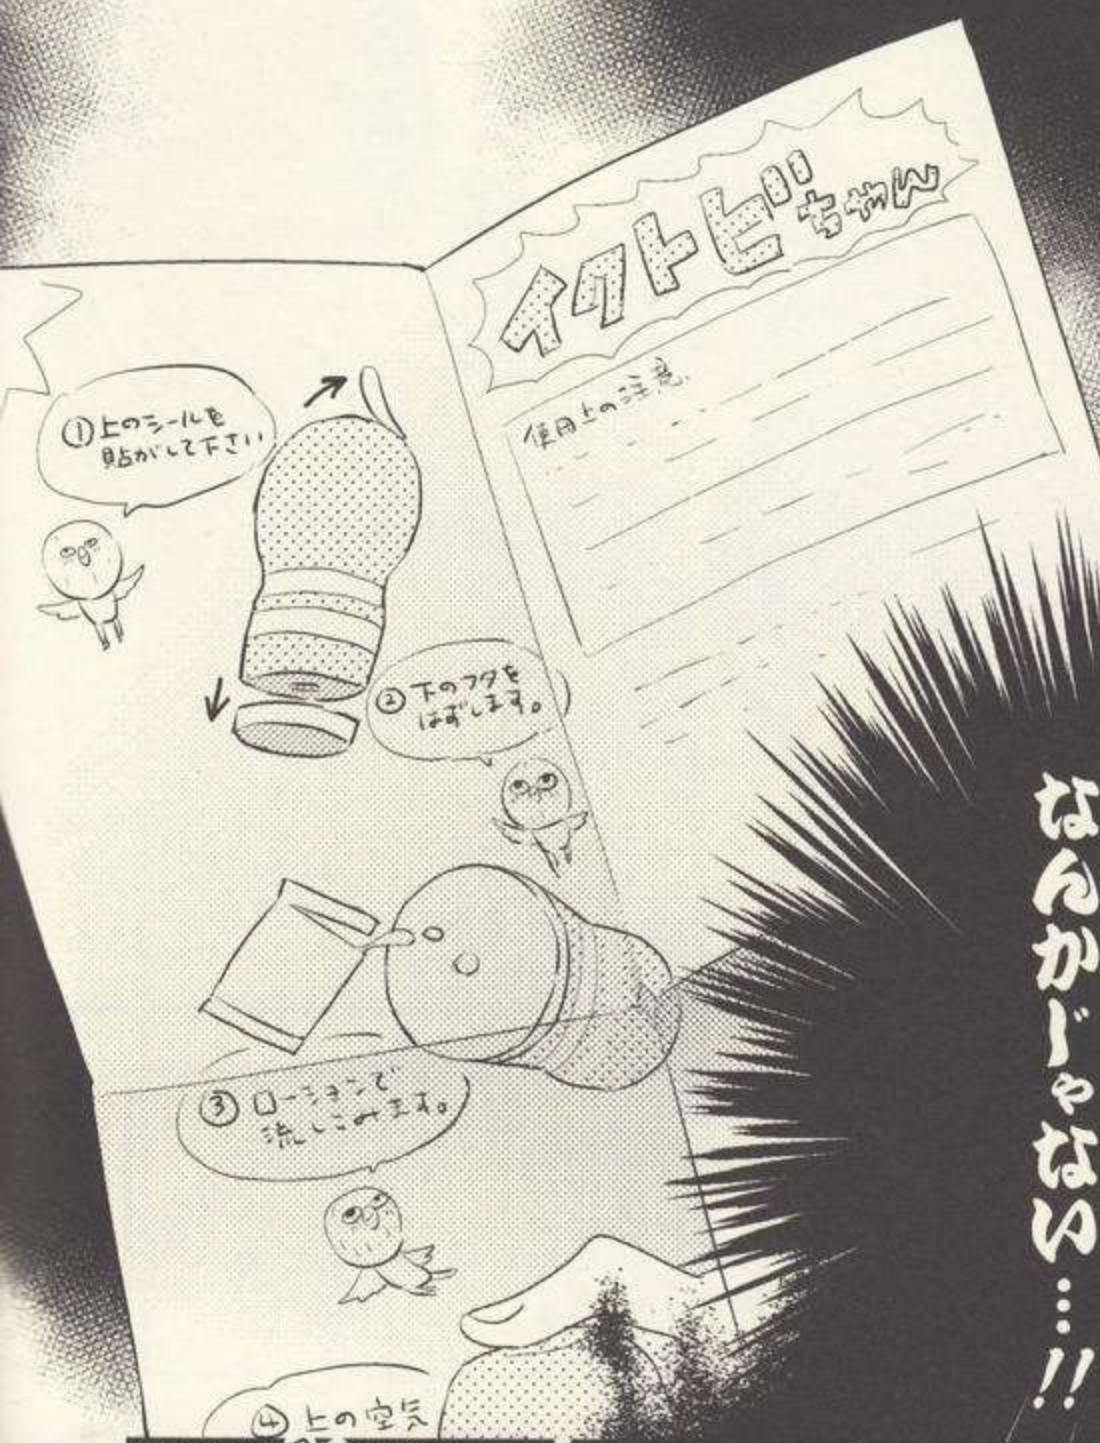 イクトビちゃん
使用上の注意
①上のシールを
貼がして下さい
②下のフタを
はずします。
③ローションで
流しこみます。
④上の空気
なんかじゃない…!!